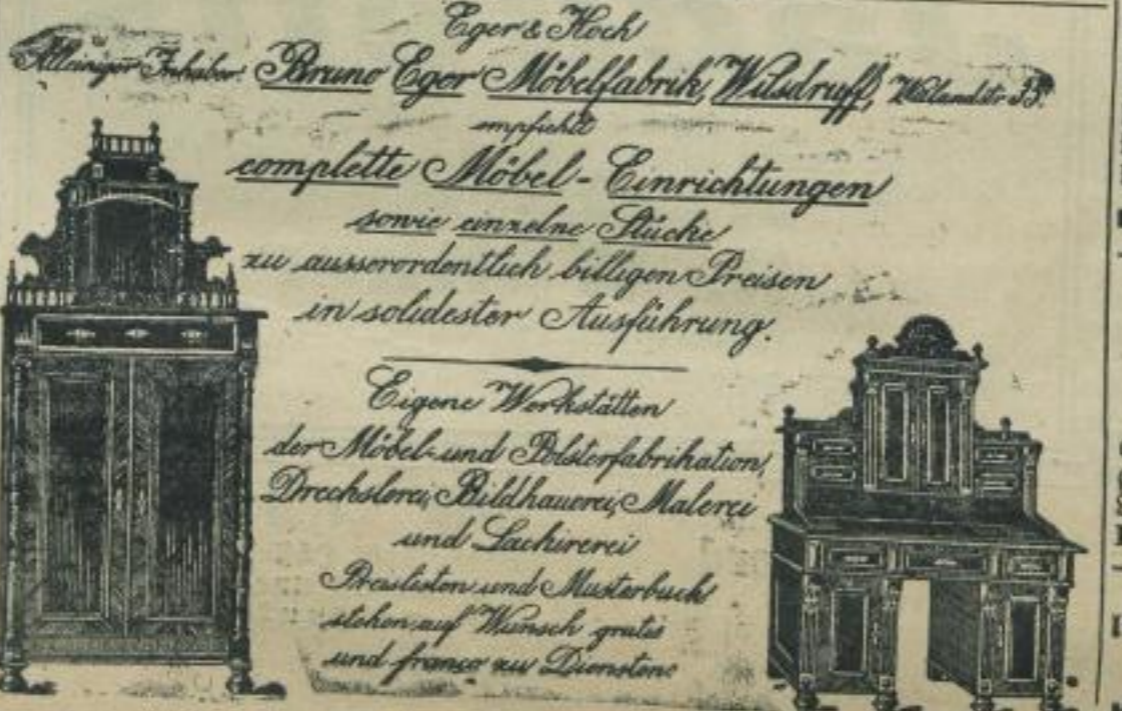 Eger & Koch
Alleiniger Inhaber: Bruno Eger Möbelfabrik, Wilsdruff,
empfiehlt
complette Möbel-Einrichtungen
sowie einzelne Stücke
zu ausserordentlich billigen Preisen
in solidester Ausführung.
Eigene Werkstätten
der Möbel- und Polsterfabrikation,
Drechslerei, Bildhauerei, Malerei
und Lackirerei
Preislisten und Musterbuch
stehen auf Wunsch gratis
und franco zu Diensten